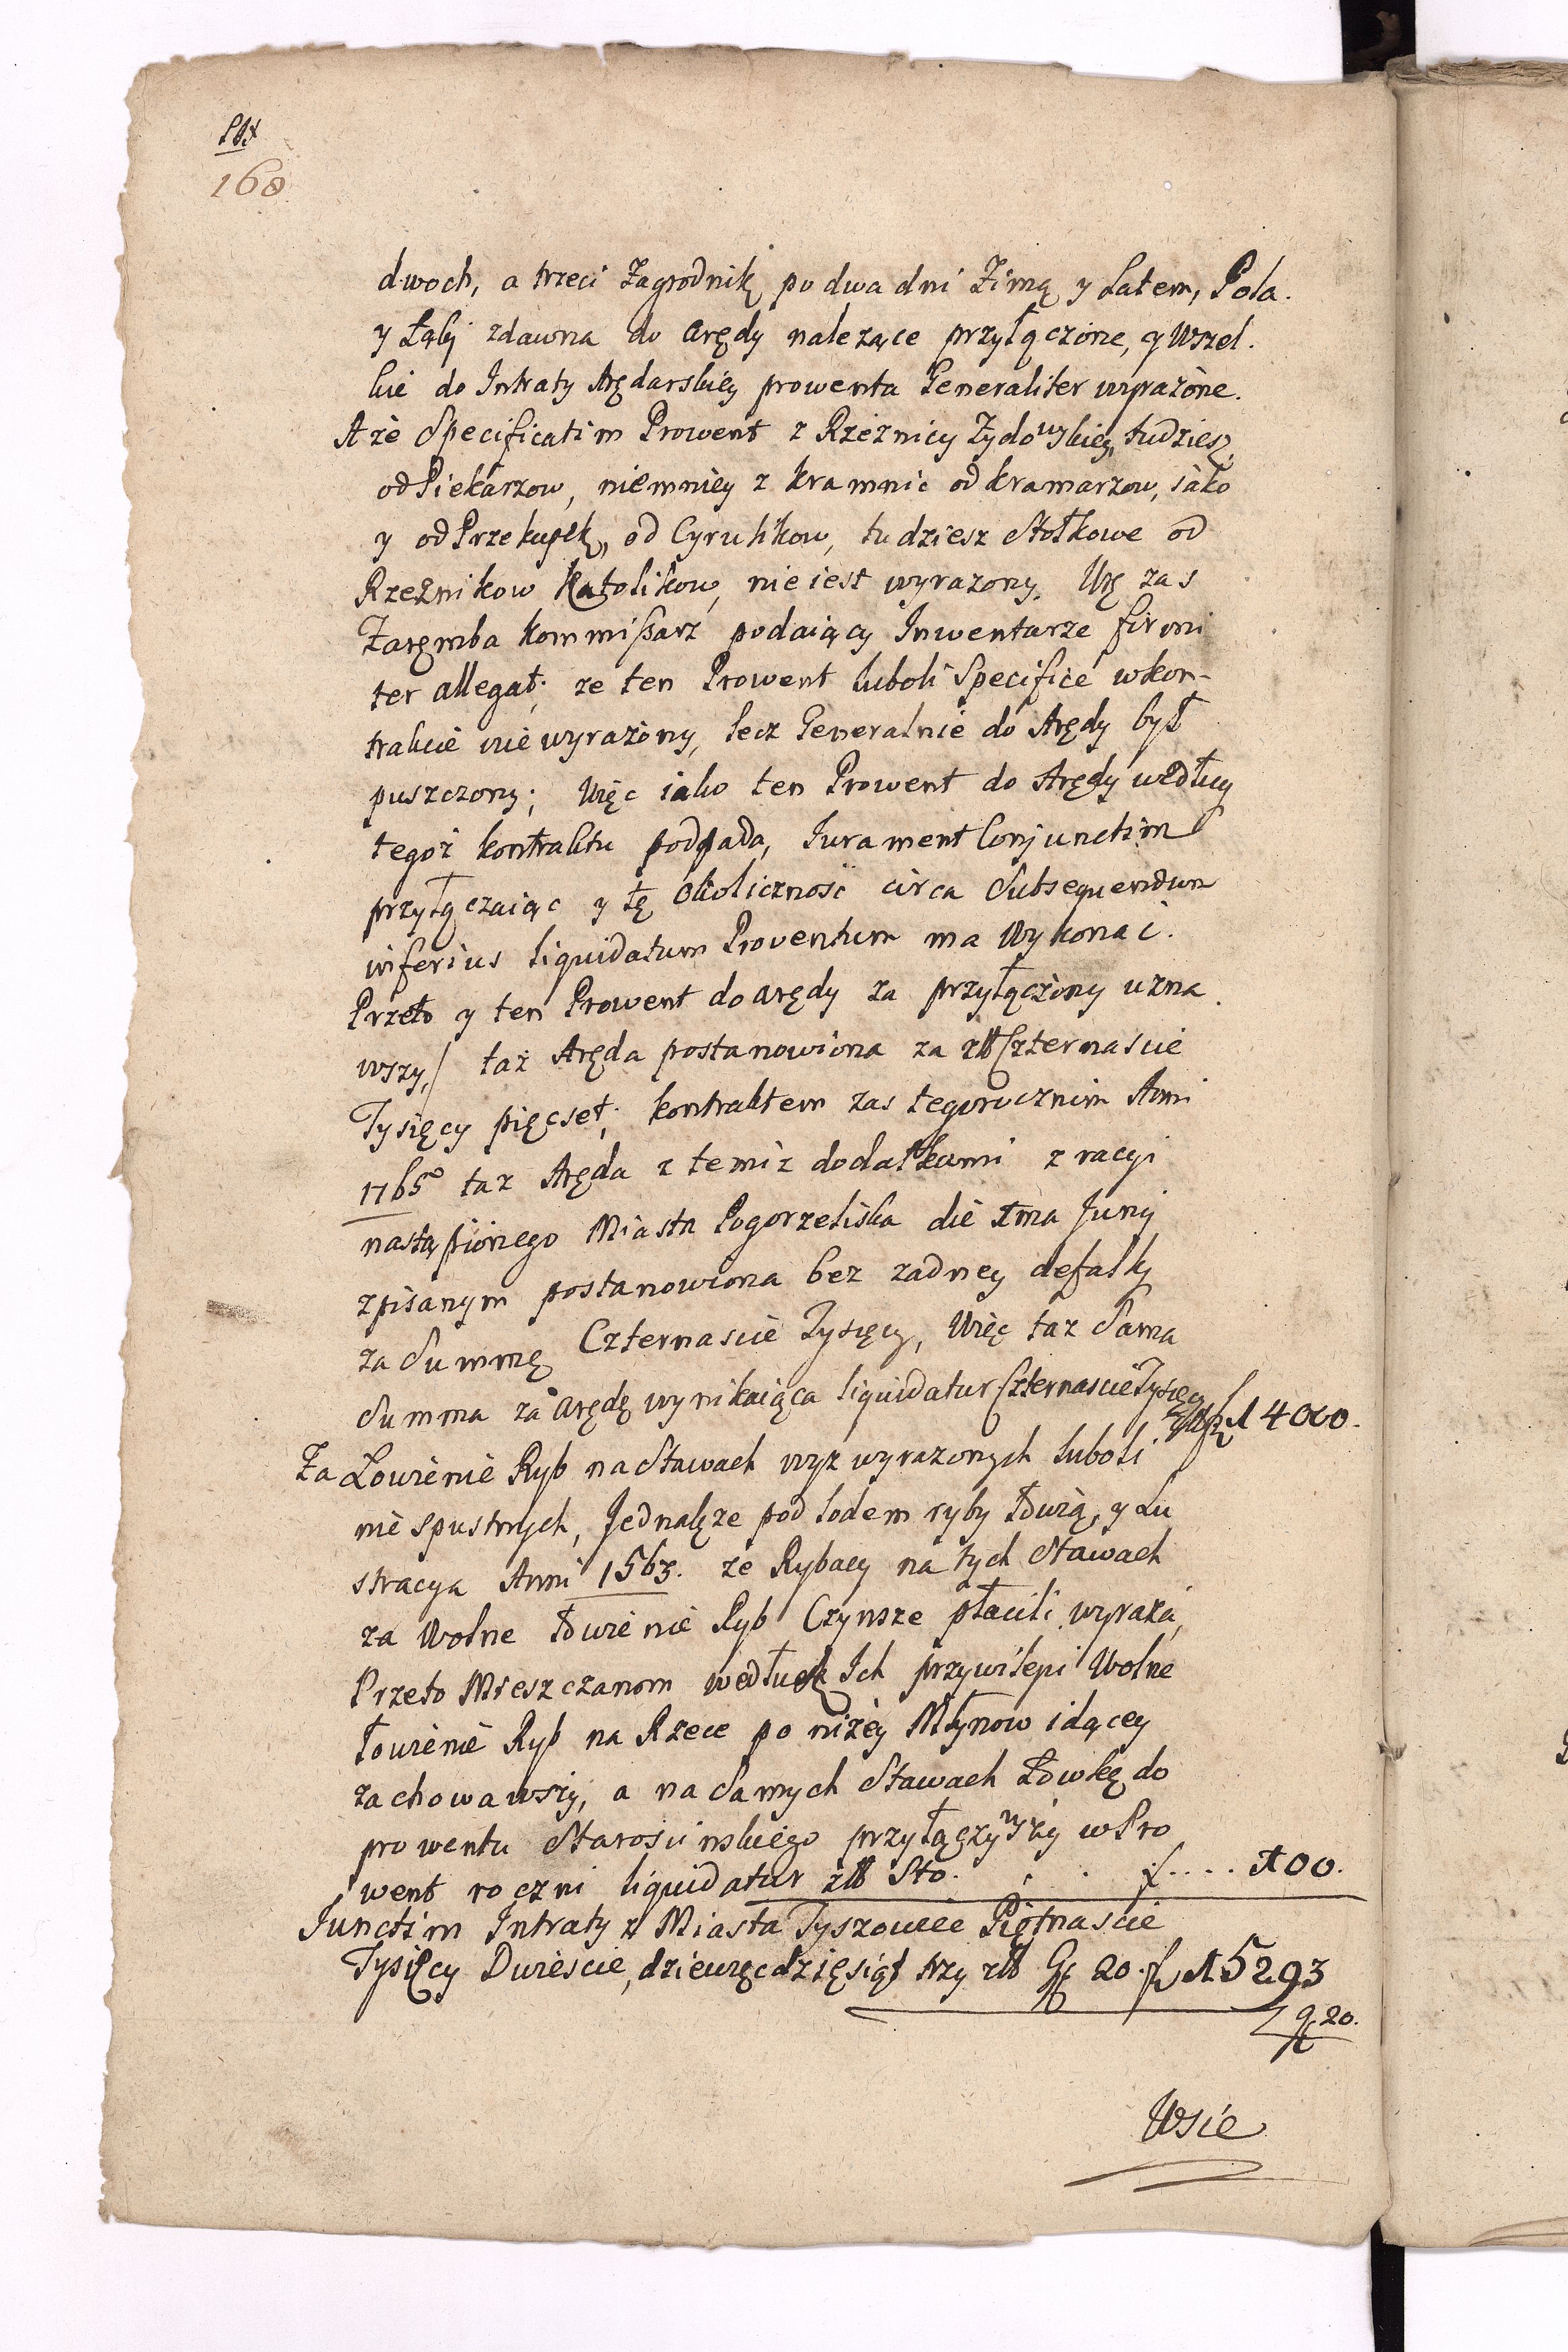 168
dwoch, a trzeci Zagrodnik po dwa dni Zimą y Latem, Pola.
y Łąki zdawna do arędy nalezące przyłączone, y Wszel.
kie do Intraty Arędarskiey prowenta Generaliter wyrażone.
A że Specificatim Prowent z Rzeźnicy Zydowskiey, tudziesz
od Piekarzow, niemniey z kramnic od kramarzow, iako
y od Przekupek, od Cyrulikow, tudziesz Stołkowe od
Rzeźnikow Katolikow, nie iest wyrazony. Ur zas
Zaręmba kommissarz podaiący Inwentarze firmi
ter allegat; ze ten Prowent luboli Specifice wkon-
trakcie nie wyrażony, lecz Generalnie do Arędy był
puszczony; Więc iako ten Prowent do Arędy według
tegoż kontraktu podpada, Jurament Conjunctim
przyłączaiąc y tę Okoliczność circa Subsequendum
inferius liquidatum Proventum ma Wykonać.
Przeto y ten Prowent do arędy za przyłączony uzna
wszy, taż Aręda postanowiona za złł Czternascie
Tysięcy pięcset; kontraktem zas tegorocznim Anni
1765º taz Aręda z temiz dodatkami z racyi
nastąpionego Miasta Pogorzeliska die 1ma Junij
zpisanym postanowiona bez zadney defalky
za Summę Czternascie Tysięcy, Więc taz Sama
Summa za arędę wynikaiąca liquidatur Czternascie Tysięcy
14000.
Za Łowienie Ryb na Stawach wyz wyrazonych luboli
nie spustnych, Jednakze pod lodem ryby łowią, y Lu
stracya Anni 1563. ze Rybacy na tych Stawach
za Wolne łowienie Ryb Czynsze płacili wyraża,
Przeto Mieszczanom według Ich przywilepi Wolne
łowienie Ryb na Rzece po niżey Młynow idącey
zachowawszy, a na Samych Stawach Łowkę do
prowentu Starościnskiego przyłączywszy w Pro
went roczni liquidatur złł Sto. . . f.... 100.
Junctim Intraty z Miasta Tyszowiec Piętnascie
Tysięcy Dwiescie, dziewięcdzięsiąt trzy złł Gr 20. f 15293
g 20.
Wsie